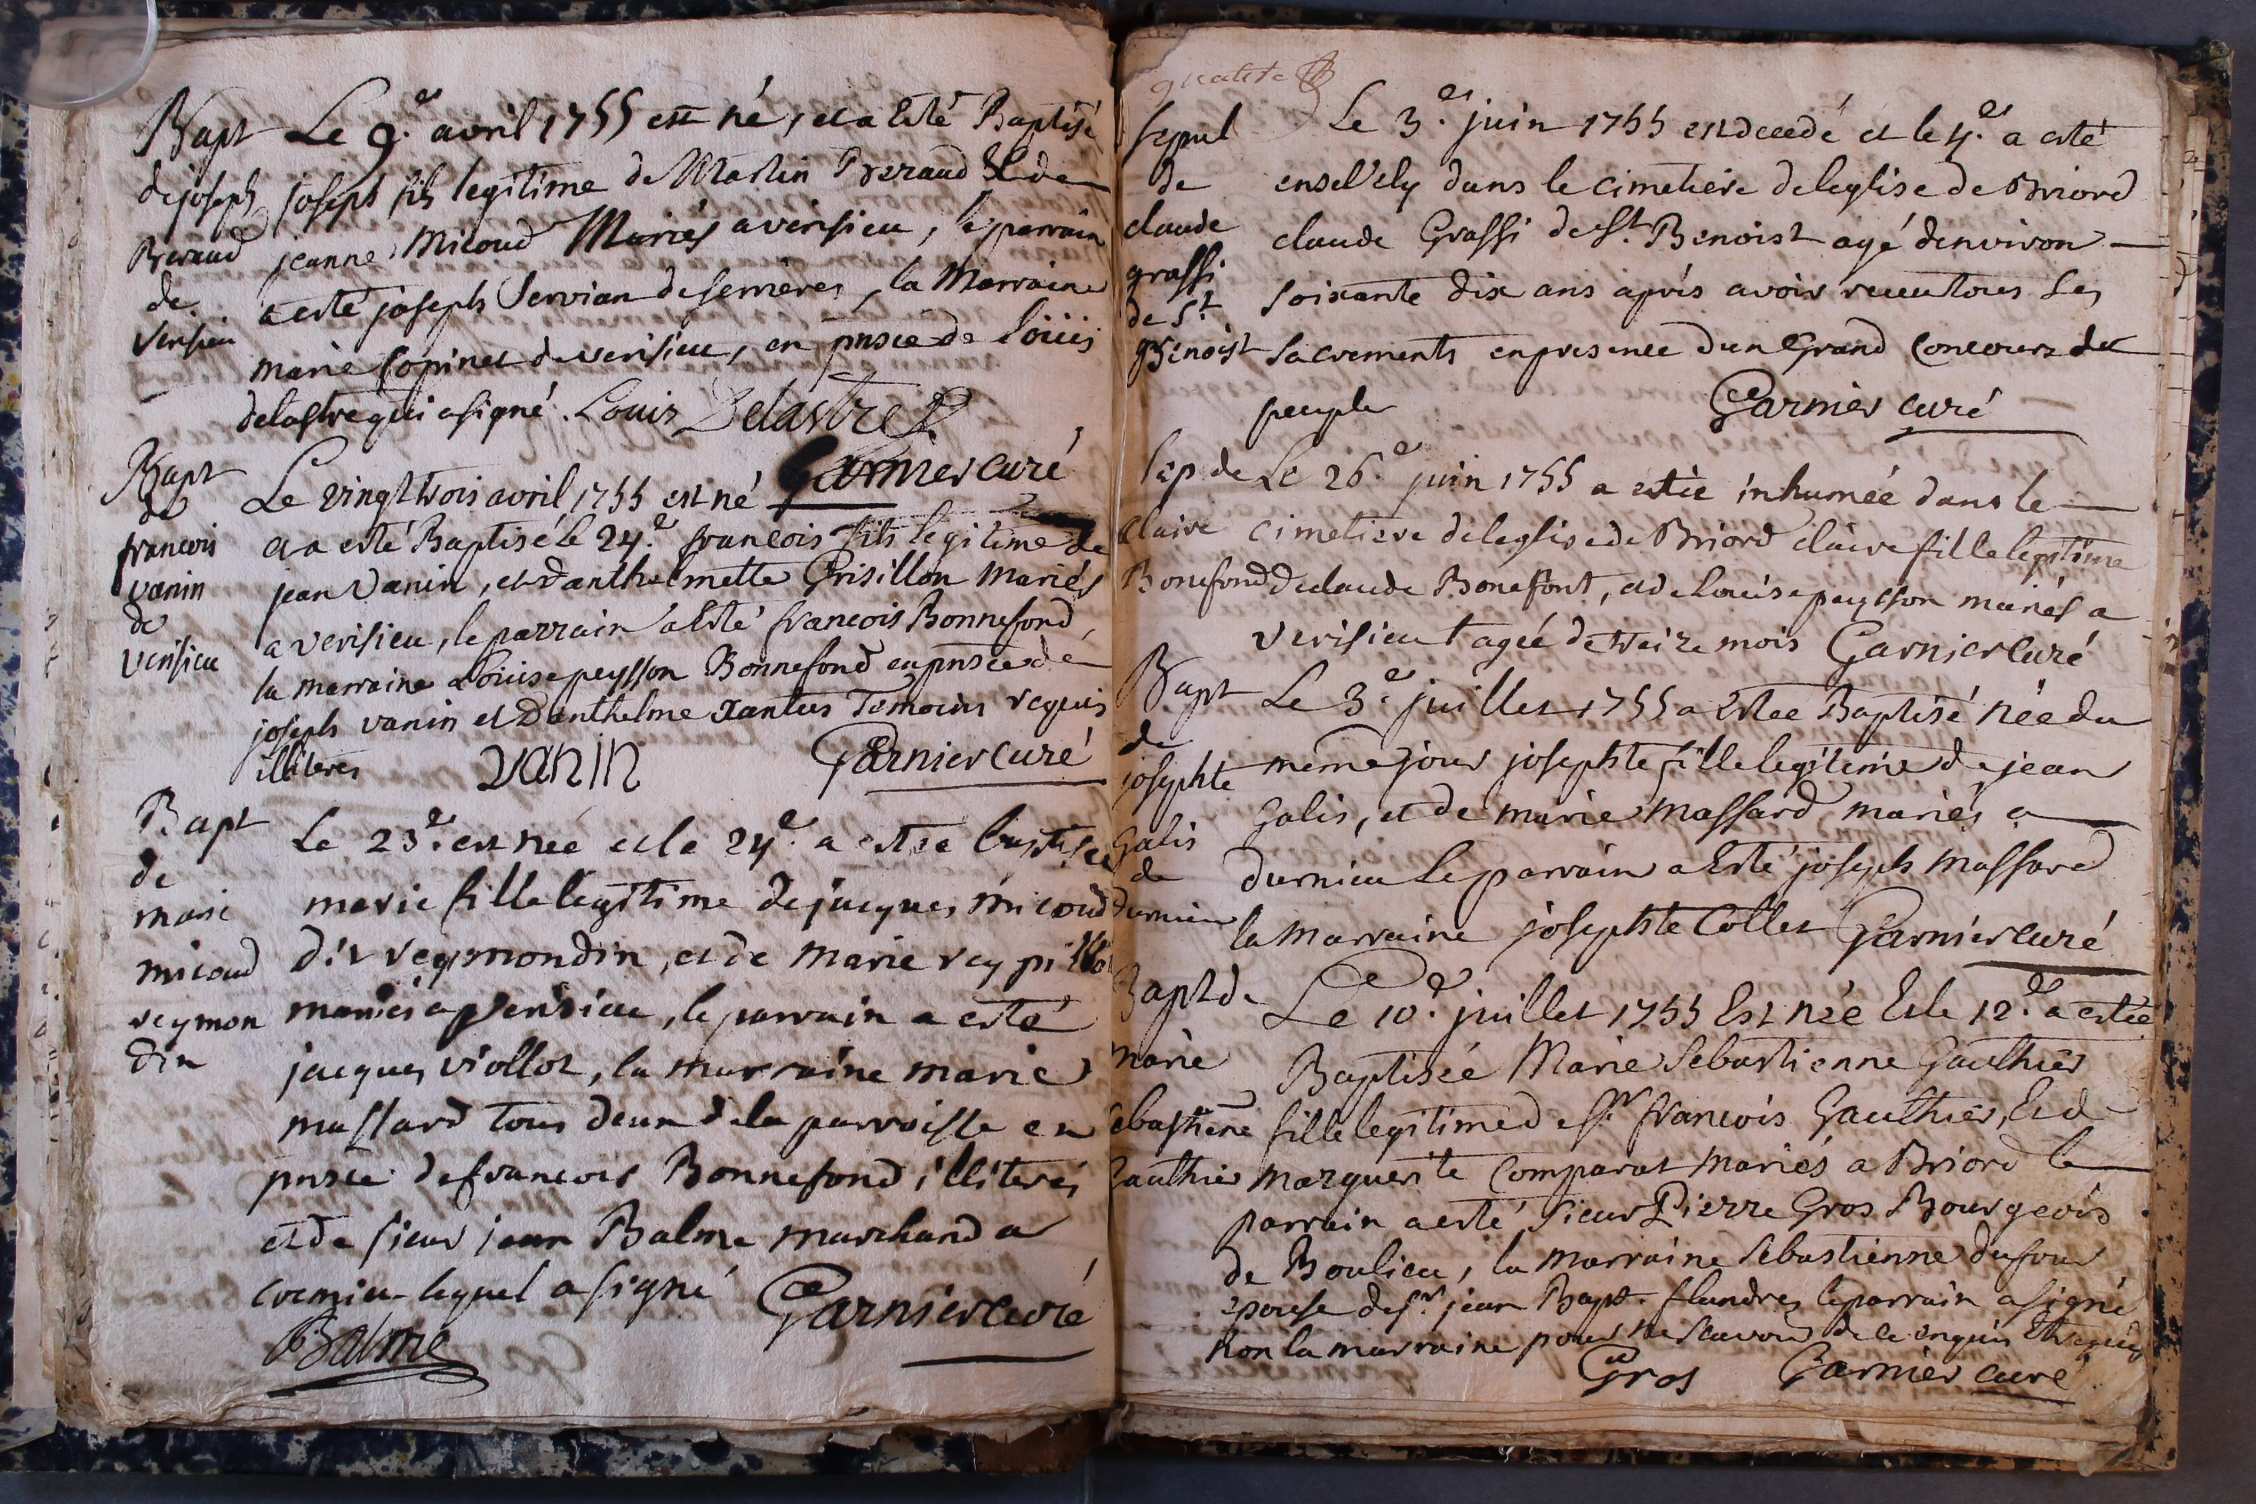 Bapt
de joseph
Preraud
de
Verisieu
Le 9.e avril 1755 est né, et a Esté Baptisé
joseph fils legitime de Martin Preraud Et de
jeanne Micoud Mariés a verisieu, le parrain
a esté joseph Servian de serrières, la Marraine
marie Copinet de verisieu, en pnsce de Loüis
delastre qui a signé. Louis Delastre
Garnier curé
Bapt
de
francois
vanin
de
verisieu
Le vingt trois avril 1755 est né
et a esté Baptisé le 24.e francois fils legitime de
jean Vanin, et d'anthelmette Grisillon Mariés
a verisieu, le parrain a Esté francois Bonnefond
la marraine Loüise peysson Bonnefond en pnsce de
joseph vanin et D'anthelme xantus Temoins requis
illiteres vanin Garnier curé
Bapt
de
marie
micoud
reymon
din
Le 23.e est née et le 24.e a estée baptisée
marie fille legitime de jacques micoud
dit reymondin, et de marie rey pillot
mariés a verisieu, le parrain a esté
jacques viollot, la marraine marie
massard tous deux de la parroisse en
pnsce de francois Bonnefond illiterés
et de sieur jean Balme marchand a
cremieu lequel a signé Garnier curé
Balme
sepul
de
claude
grassi
de St
Benoist
Le 3.e juin 1755 est decedé et le 4.e a esté
ensevely dans le cimetiere de leglise de Briord
claude Grassi de St. Benoist agé denviron
soixante dix ans aprés avoir receu tous Les
sacrements en presence d'un Grand Concours de
peuple Garnier curé
sep de
claire
Bonefond
Le 26.e juin 1755 a estée inhumée dans le
cimetiere de leglise de Briord claire fille legitime
de claude Bonefont, et de Loüise peysson mariés a
verisieu agée de treize mois Garnier curé
Bapt
de
josephte
Galis
de
dornieu
Le 3.e juillet 1755 a Estee Baptisé née du
meme jour josephte fille legitime de jean
Galis, et de marie massard mariés a
durnieu Le parrain a Esté joseph massard
la Marraine josephte Collet Garnier curé
Bapt de
marie
sebastiene
Gauthier
Le 10.e juillet 1755 Est née Et le 12.e a estée
Baptisée Marie Sebastienne Gauthier
fille legitime de Sr. francois Gauthier, Et de
marguerite Comparat Mariés a Briord le
parrain a esté Sieur Pierre Gros Bourgeois
de Boulieu, la marraine Sebastienne dufour
epouse de Sr. jean Bapt. flandres le parrain a signé
non la marraine pour ne scavoir de ce enquis Et requis
Gros Garnier curé